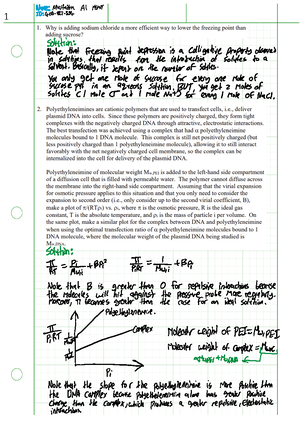 1
Name: Mustahsin Al
1. Why is adding sodium chloride a more efficient way to lower the freezing point than
adding sucrose?
Solution:
Note that freezing point depression is a colligative property observed
in solutions, that results from the introduction of solutes to a
solvent. Basically, it depends on the number of solutes.
You only get one mole of sucrose for every one mole of
sucrose put in an aqueous solution, BUT, you get 2 moles of
solutes (1 mole Cl⁻ and 1 mole Na⁺) for every 1 mole of NaCl.
2. Polyethyleneimines are cationic polymers that are used to transfect cells, i.e., deliver
plasmid DNA into cells. Since these polymers are positively charged, they form tight
complexes with the negatively charged DNA through attractive, electrostatic interactions.
The best transfection was achieved using a complex that had α polyethyleneimine
molecules bound to 1 DNA molecule. This complex is still net positively charged (but
less positively charged than 1 polyethyleneimine molecule), allowing it to still interact
favorably with the net negatively charged cell membrane, so the complex can be
internalized into the cell for delivery of the plasmid DNA.
Polyethyleneimine of molecular weight Mw,PEI is added to the left-hand side compartment
of a diffusion cell that is filled with permeable water. The polymer cannot diffuse across
the membrane into the right-hand side compartment. Assuming that the virial expansion
for osmotic pressure applies to this situation and that you only need to consider the
expansion to second order (i.e., only consider up to the second virial coefficient, B),
make a plot of π/(RTρ₁) vs. ρ₁, where π is the osmotic pressure, R is the ideal gas
constant, T is the absolute temperature, and ρ₁ is the mass of particle i per volume. On
the same plot, make a similar plot for the complex between DNA and polyethyleneimine
when using the optimal transfection ratio of α polyethyleneimine molecules bound to 1
DNA molecule, where the molecular weight of the plasmid DNA being studied is
Solution:
Note that B is greater than 0 for repulsive interactions because
the molecules will hit against the
Moreover, π becomes greater than the case for an ideal solution.
Polyethyleneimine.
Complex
Molecular weight of PEI = Mw,PEI
Molecular weight of complex =
Note that the slope for the polyethyleneimine is more positive than
the DNA complex because polyethyleneimine alone has greater positive
charge than the complex, which produces a greater repulsive, electrostatic
interaction.